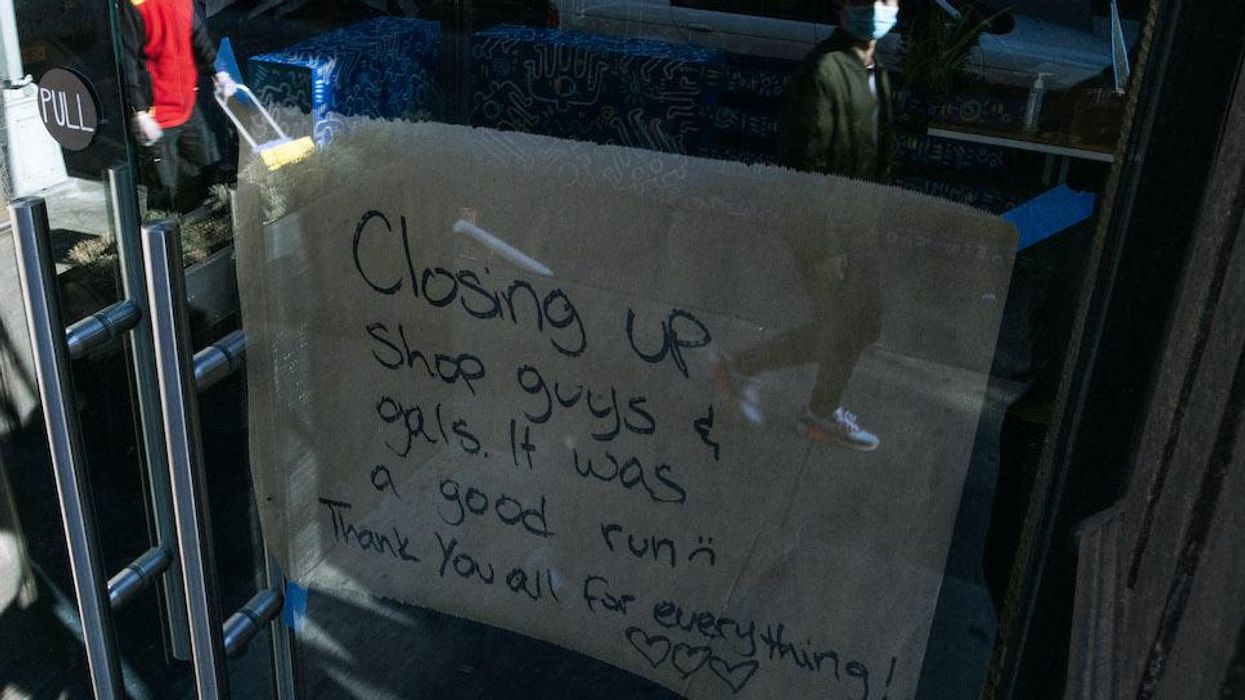 PULL
Closing up
Shop guys &
gals. It was
a good run :(
Thank You all for everything!
♡♡♡